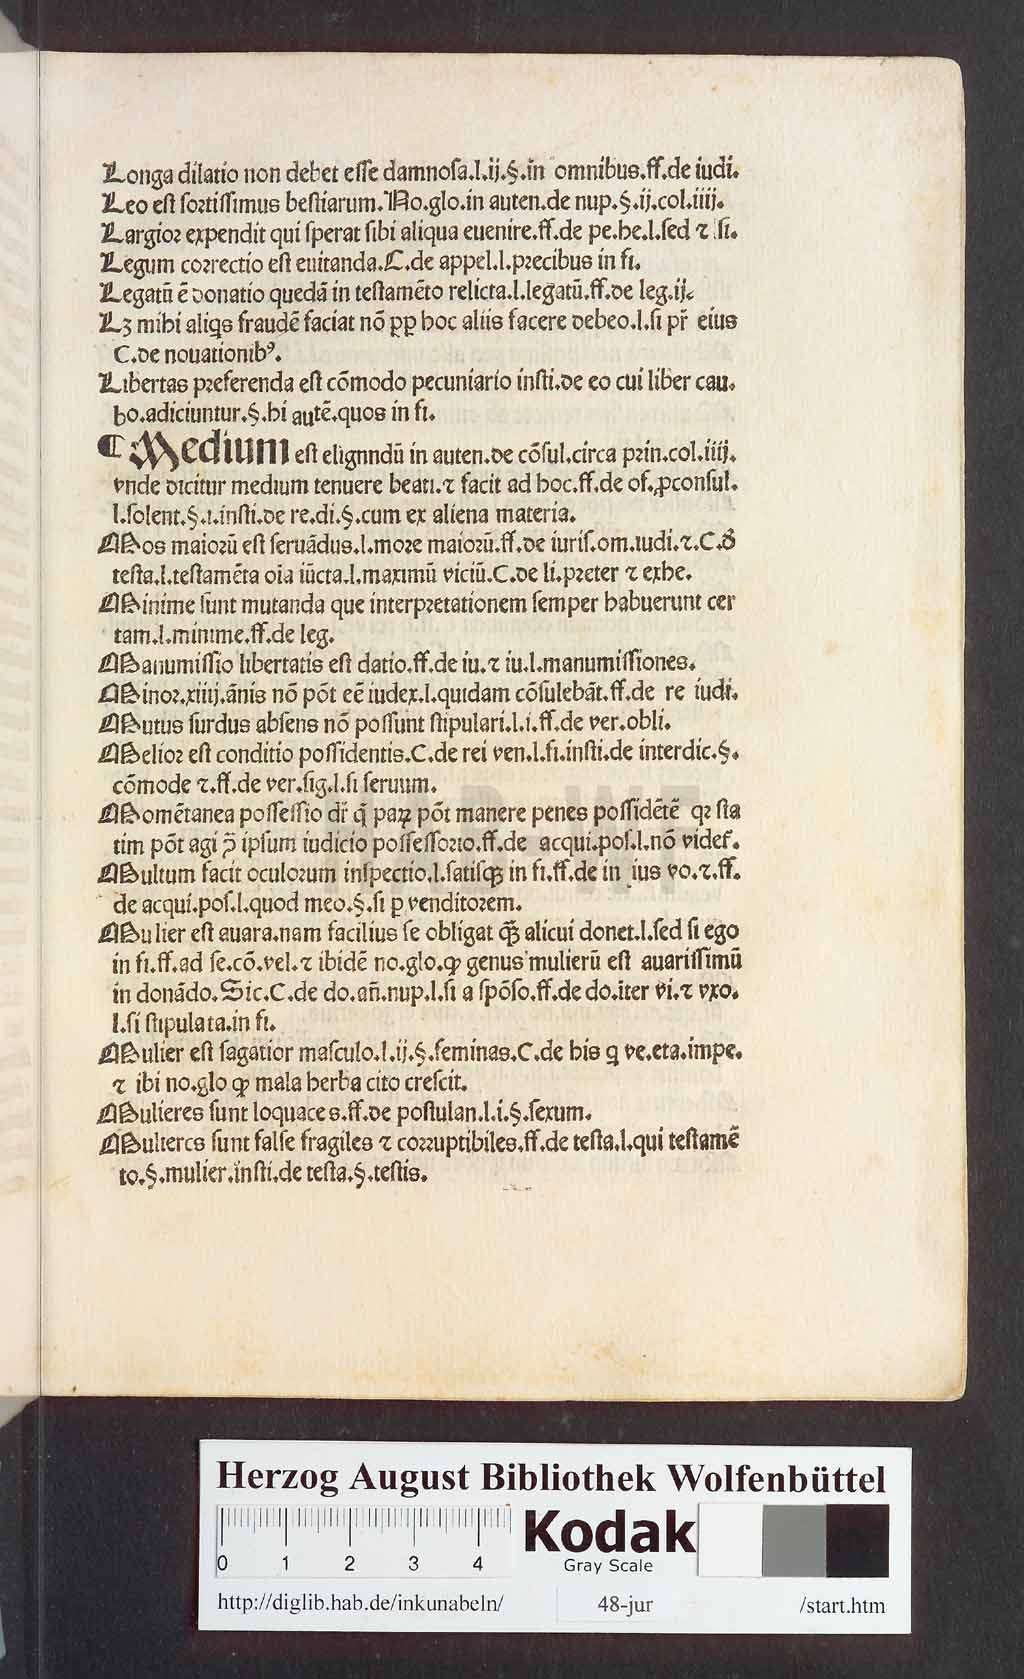 Longa dilatio non debet esse damnosa.l.ij.§.in omnibus.ff.de iudi.
Leo est fortissimus bestiarum.No.glo.in auten.de nup.§.ij.col.iiij.
Largior expendit qui sperat sibi aliqua euenire.ff.de pe.he.l.sed ⁊ si.
Legum correctio est euitanda.C.de appel.l.precibus in fi.
Legatū ē donatio quedā in testamēto relicta.l.legatū.ff.de leg.ij.
Lꝫ mihi aliq̄s fraudē faciat nō ꝓꝑ hoc aliis facere debeo.l.si pr̄ eius
C.de nouationibꝰ.
Libertas preferenda est cōmodo pecuniario insti.de eo cui liber cau.
bo.adiciuntur.§.hi autē.quos in fi.
¶ Medium est elignndū in auten.de cōsul.circa prin.col.iiij.
vnde dicitur medium tenuere beati.⁊ facit ad hoc.ff.de of.ꝓconsul.
l.solent.§.1.insti.de re.di.§.cum ex aliena materia.
Mos maiorū est seruādus.l.more maiorū.ff.de iuris.om.iudi.⁊.C.d̄
testa.l.testamēta oīa iūcta.l.maximū viciū.C.de li.preter ⁊ exhe.
Minime sunt mutanda que interpretationem semper habuerunt cer
tam.l.minime.ff.de leg.
Manumissio libertatis est datio.ff.de iu.⁊ iu.l.manumissiones.
Minor.xiiij.ānis nō pōt eē iudex.l.quidam cōsulebāt.ff.de re iudi.
Mutus surdus absens nō possunt stipulari.l.i.ff.de ver.obli.
Melior est conditio possidentis.C.de rei ven.l.fi.insti.de interdic.§.
cōmode ⁊.ff.de ver.sig.l.si seruum.
Momētanea possessio dr̄ q̄ paꝝ pōt manere penes possidētē qr sta
tim pōt agi ꝑ̄ ipsum iudicio possessorio.ff.de acqui.pos.l.nō videt̄.
Multum facit oculorum inspectio.l.satisqꝫ in fi.ff.de in ius vo.⁊.ff.
de acqui.pos.l.quod meo.§.si ꝑ venditorem.
Mulier est auara.nam facilius se obligat qꝫ̄ alicui donet.l.sed si ego
in fi.ff.ad se.cō.vel.⁊ ibidē no.glo.ꝙ genus mulierū est auarissimū
in donādo.Sic.C.de do.an̄.nup.l.si a spōso.ff.de do.iter vi.⁊ vxo.
l.si stipulata.in fi.
Mulier est sagatior masculo.l.ij.§.feminas.C.de his q̄ ve.eta.impe.
⁊ ibi no.glo ꝙ mala herba cito crescit.
Mulieres sunt loquaces.ff.de postulan.l.i.§.sexum.
Mulieres sunt false fragiles ⁊ corruptibiles.ff.de testa.l.qui testamē
to.§.mulier.insti.de testa.§.testis.
Herzog August Bibliothek Wolfenbüttel
0 1 2 3 4
Kodak
Gray Scale
http://diglib.hab.de/inkunabeln/ 48-jur /start.htm